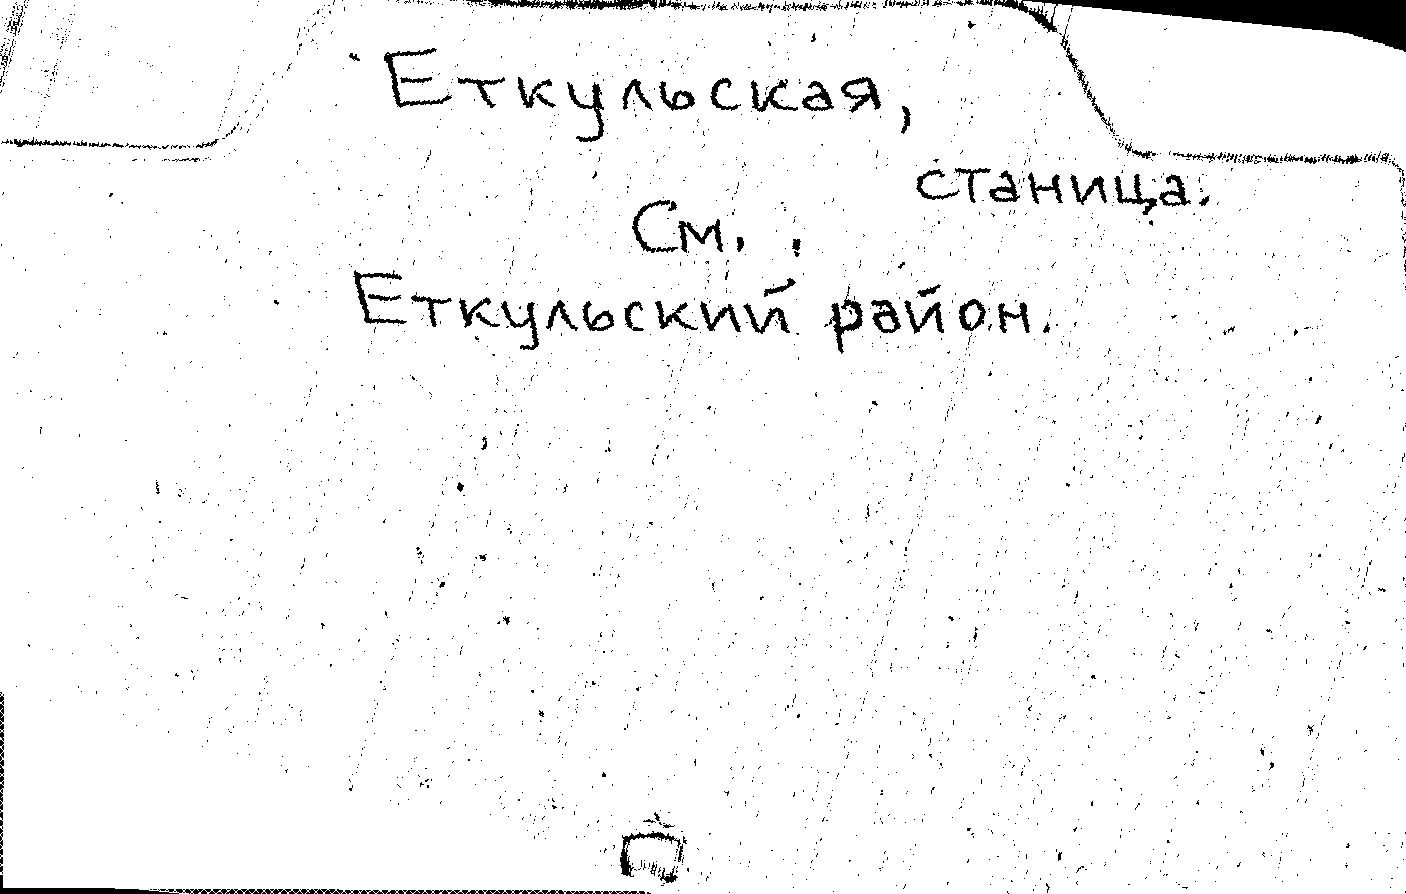 Еткульская,
станица.
См.
Еткульский район.